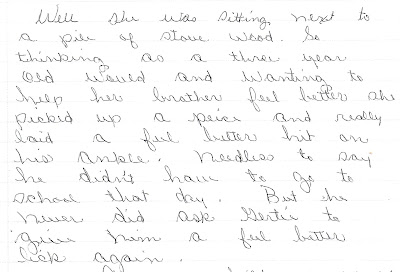 Well she was sitting next to
a pile of stove wood. So
thinking as a three year
old would and wanting to
help her brother feel better she
picked up a peice and really
laid a feel better hit on
his ankle. Needless to say
he didn't have to go to
school that day. But he
never did ask Gertie to
give him a feel better
lick again.